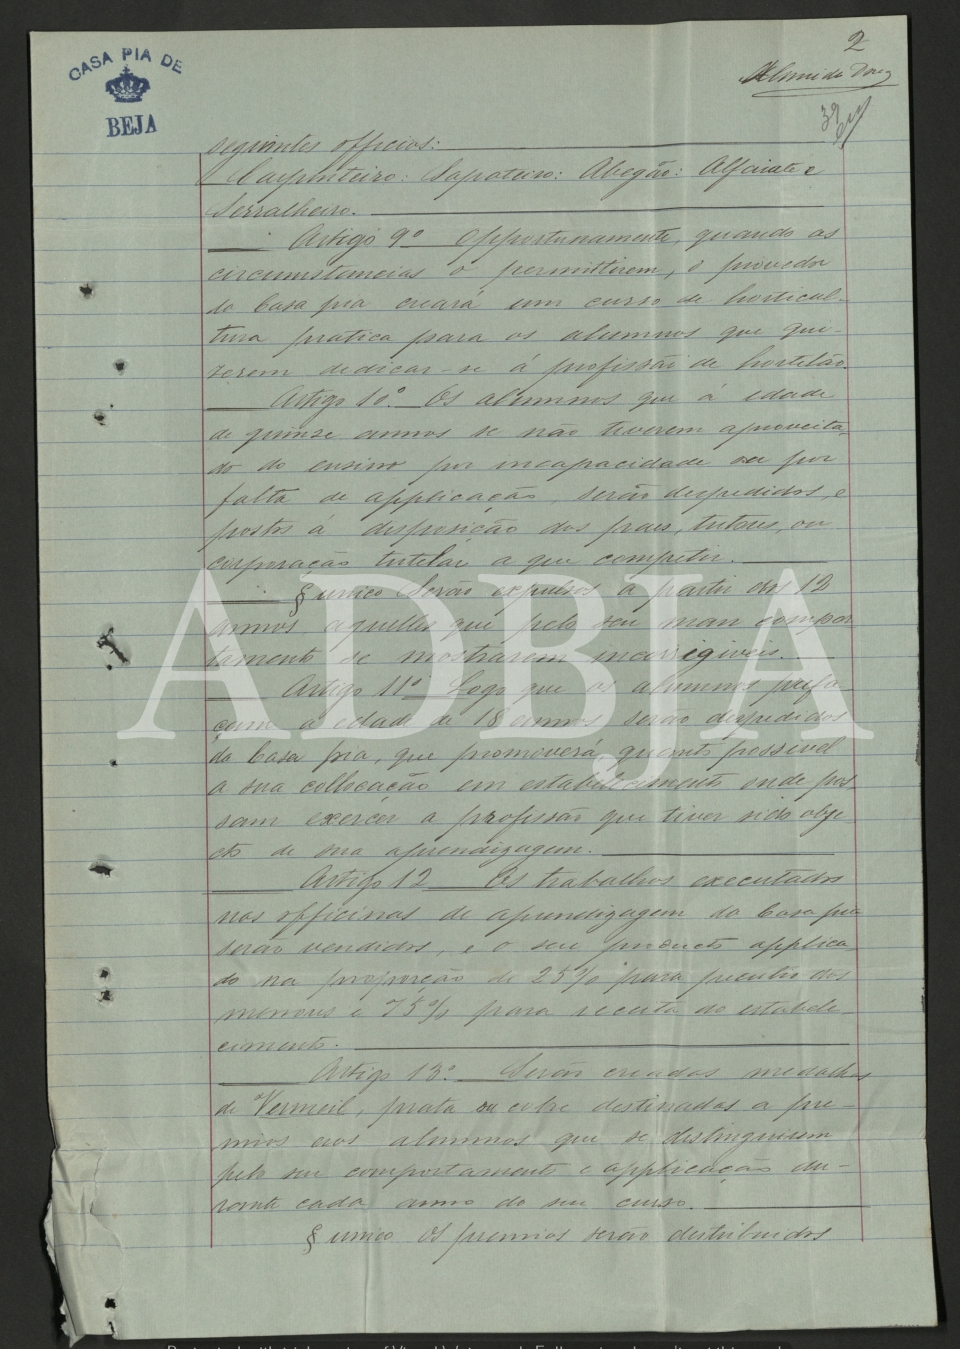 CASA PIA DE
BEJA
2
Almeida
seguintes officios:
Carpinteiro: Sapateiro: Abegão: Alfaiate e
Serralheiro.
Artigo 9º Opportunamente, quando as
circumstancias o permittirem, o provedor
da Casa pia creará um curso de horticul-
tura pratica para os alumnos que qui-
zerem dedicar-se á profissão de hortelão.
Artigo 10º. Os alumnos que á edade
de quinze annos se não tiverem aproveita-
do do ensino por incapacidade ou por
falta de applicação, serão despedidos, e
postos á disposição dos paes, tutores, ou
corporação tutelar a que competir.
§ unico Serão expulsos a partir dos 12
annos, aquelles que pelo seu mau compor
tamento se mostrarem incorrigiveis.
Artigo 11º Logo que os alumnos perfa
çam a edade de 18 annos serão despedidos
da Casa pia, que promoverá, quanto possivel
a sua collocação em estabelecimento onde pos-
sam exercer a profissão que tiver sido obje
cto de sua aprendizagem.
Artigo 12 Os trabalhos executados
nas officinas de aprendizagem da Casa pia
serão vendidos, e o seu producto applica-
do na proporção de 25% para peculio dos
menores e 75% para receita do estabele-
cimento.
Artigo 13º. Serão creadas medalhas
de Vermeil, prata ou cobre destinadas a pre-
mios aos alumnos que se distinguirem
pelo seu comportamento e applicação du-
rante cada anno do seu curso.
§ unico Os premios serão distribuidos
ADBJA